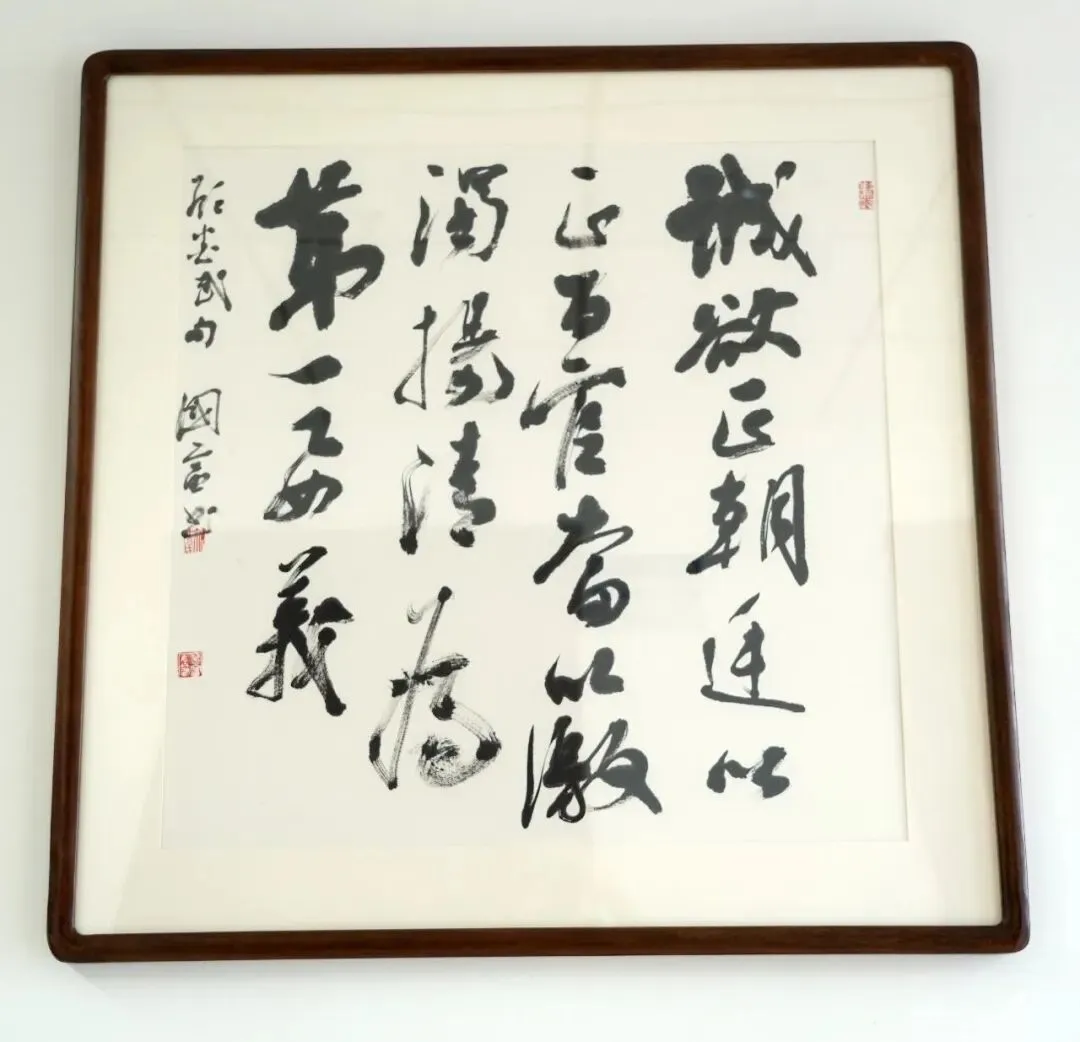 誠欲正朝廷以
正百官當以激
濁揚清為
第一要義
顧炎武句 國富書